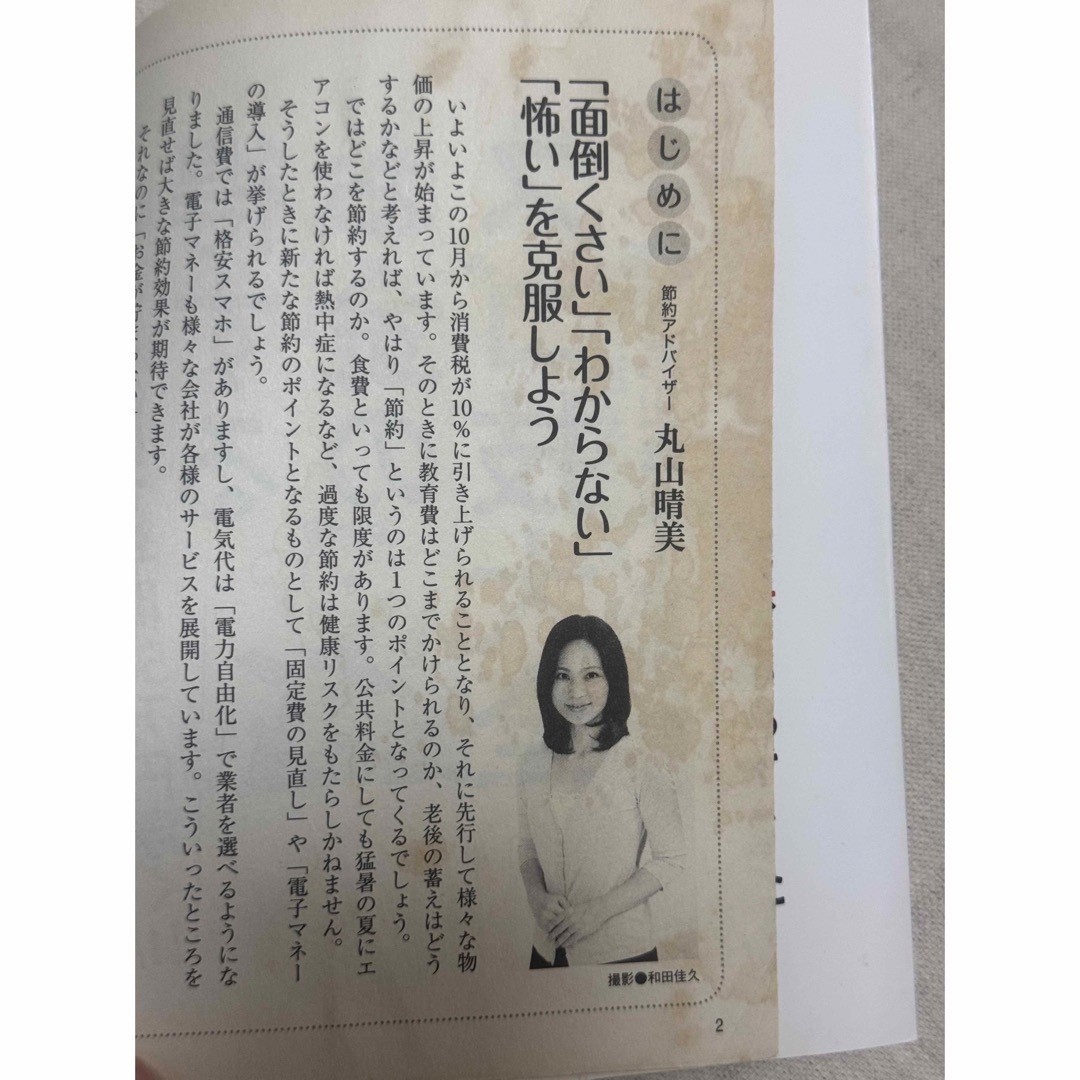 はじめに
節約アドバイザー 丸山晴美
「面倒くさい」「わからない」
「怖い」を克服しよう
いよいよこの10月から消費税が10%に引き上げられることとなり、それに先行して様々な物
価の上昇が始まっています。そのときに教育費はどこまでかけられるのか、老後の蓄えはどう
するかなどと考えれば、やはり「節約」というのは1つのポイントとなってくるでしょう。
ではどこを節約するのか。食費といっても限度があります。公共料金にしても猛暑の夏にエ
アコンを使わなければ熱中症になるなど、過度な節約は健康リスクをもたらしかねません。
そうしたときに新たな節約のポイントとなるものとして「固定費の見直し」や「電子マネー
の導入」が挙げられるでしょう。
通信費では「格安スマホ」がありますし、電気代は「電力自由化」で業者を選べるようにな
りました。電子マネーも様々な会社が各様のサービスを展開しています。こういったところを
見直せば大きな節約効果が期待できます。
それなのに「お金が
撮影●和田佳久
2